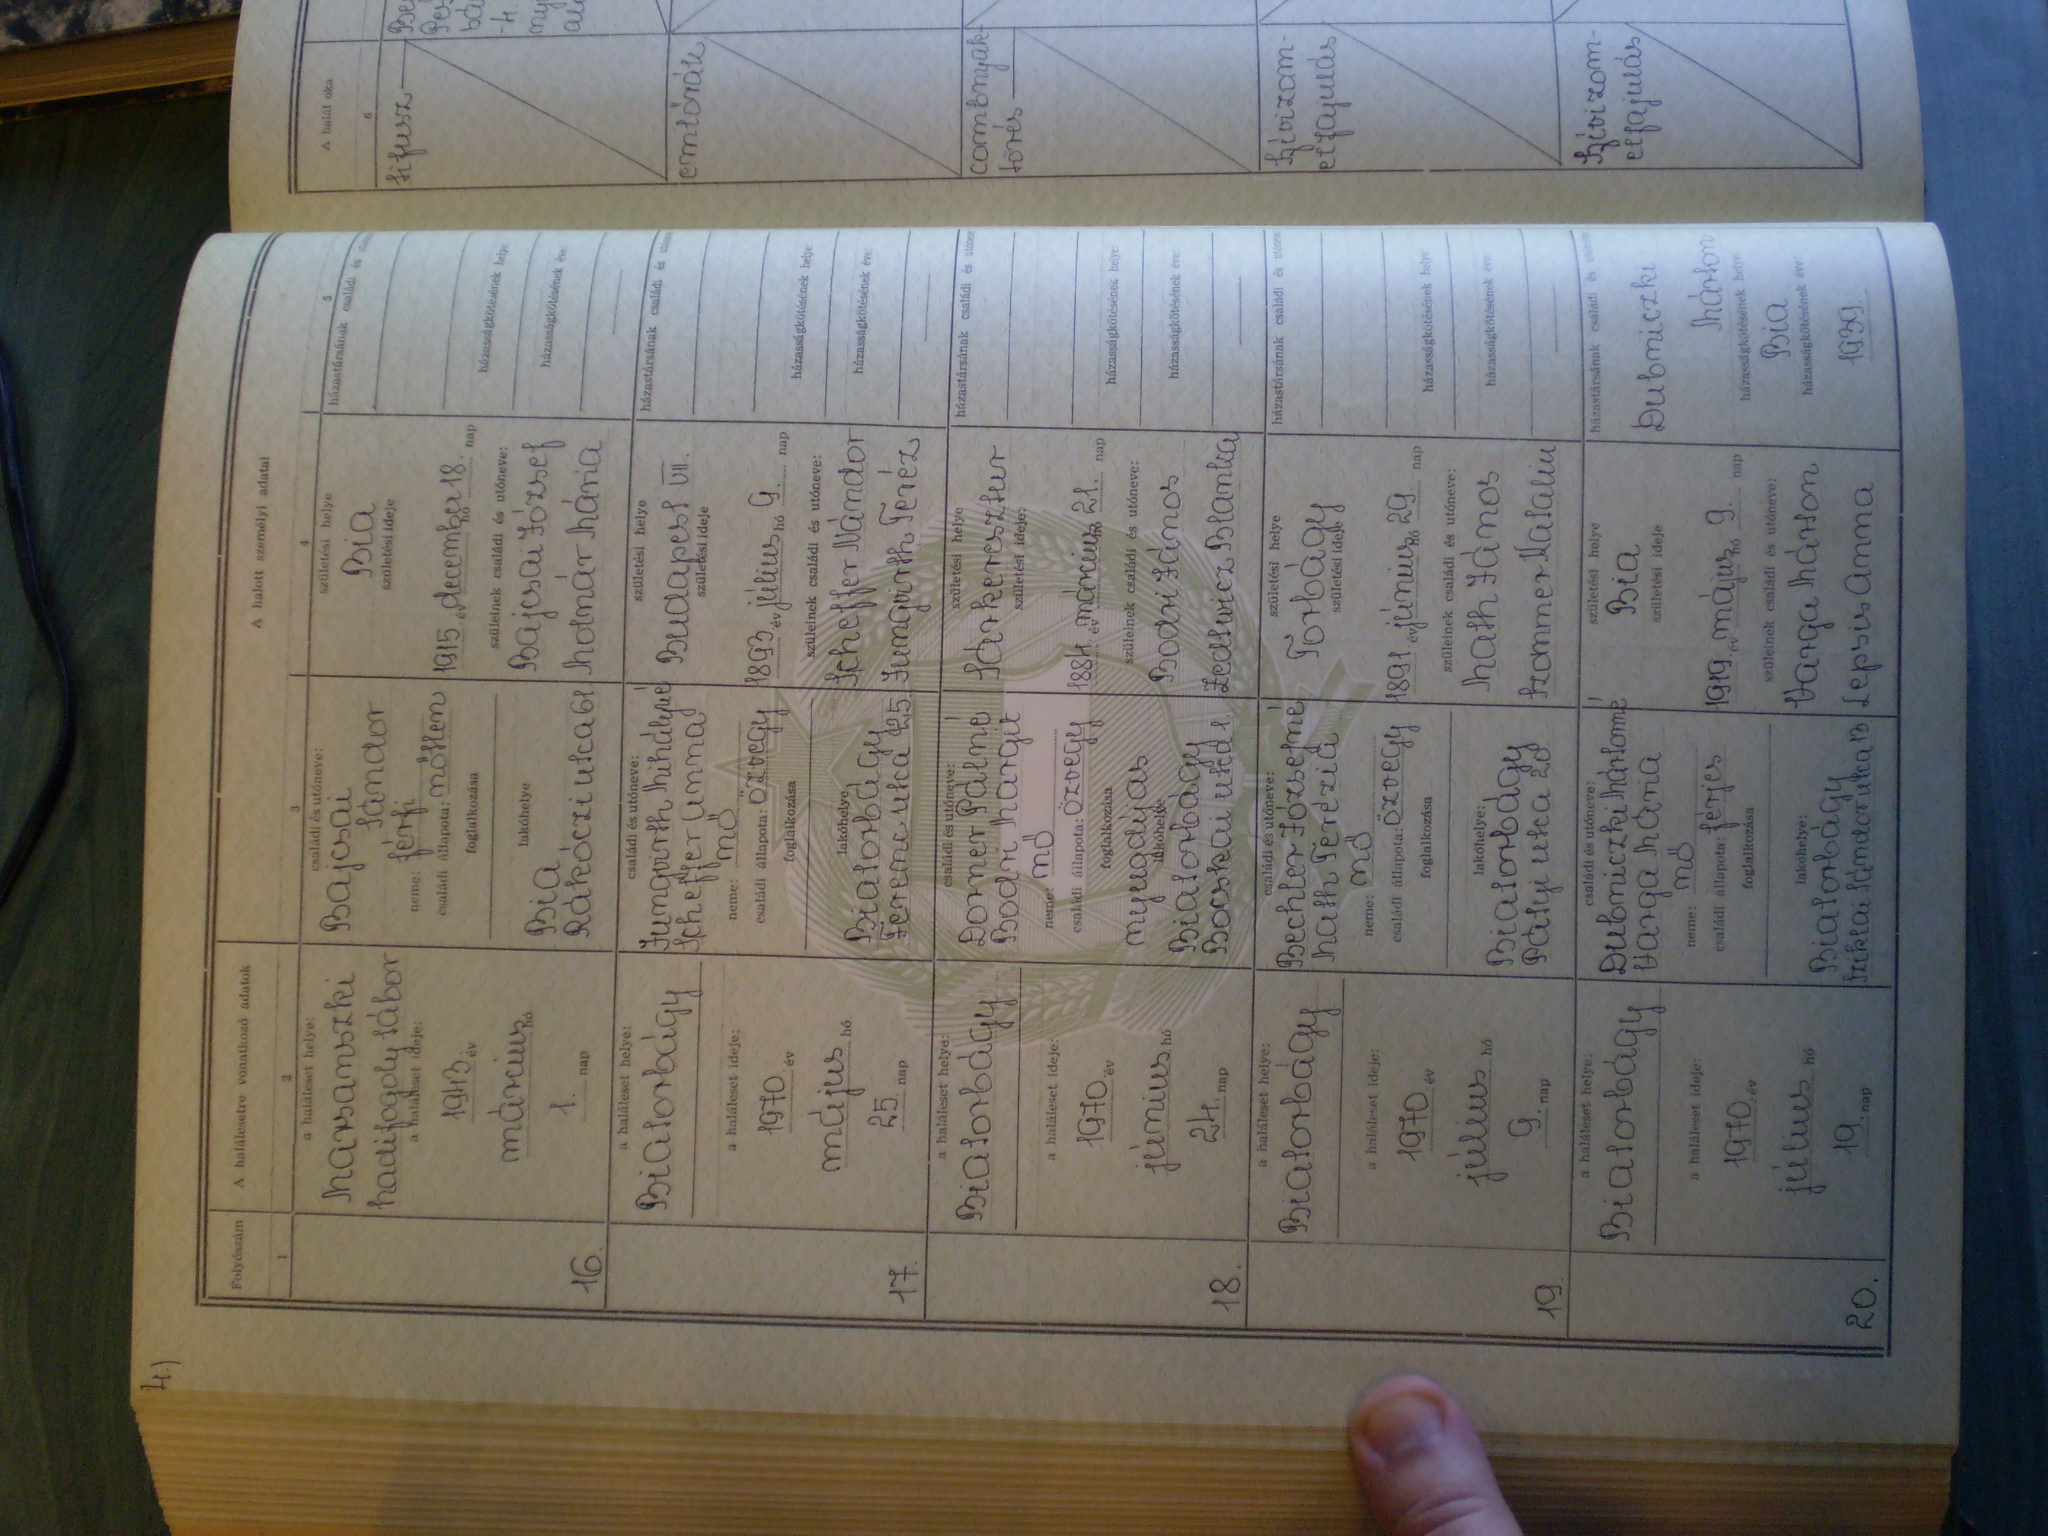 4.)
Folyószám
A halálesetre vonatkozó adatok
A halott személyi adatai
A halál oka
1
2
3
4
5
6
a haláleset helye:
Marsanszki
hadifogoly tábor
a haláleset ideje:
1943. év
március hó
1. nap
16.
családi és utóneve:
Bajcsai
Sándor
neme: férfi
családi állapota: nőtlen
foglalkozása
lakóhelye
Bia
Rákóczi utca 61
születési helye
Bia
születési ideje
1915 év december hó 18. nap
szüleinek családi és utóneve:
Bajcsai József
Molnár Mária
házastársának családi és
házasságkötésének helye
házasságkötésének éve:
tifusz
a haláleset helye:
Biatorbágy
a haláleset ideje:
1970. év
május hó
25. nap
17.
családi és utóneve:
Jungvirth Mihályné
Scheffer Anna
neme: nő
családi állapota: özvegy
foglalkozása
lakóhelye
Biatorbágy
Ferenc utca 25.
születési helye
Budapest VII.
születési ideje
1893 év július hó 9. nap
szüleinek családi és utóneve:
Scheffer Nándor
Jungvirth Teréz
házastársának családi és
házasságkötésének helye
házasságkötésének éve:
emlőrák
a haláleset helye:
Biatorbágy
a haláleset ideje:
1970. év
június hó
24. nap
18.
családi és utóneve:
Dorner Pálné
Bodri Margit
neme: nő
családi állapota: özvegy
foglalkozása
nyugdíjas
lakóhelye
Biatorbágy
Bocskai utca 1.
születési helye
Sárkeresztur
születési ideje:
1884 év március hó 21. nap
szüleinek családi és utóneve:
Bodri János
Zedtvicz Blanka
házastársának családi és
házasságkötésének helye
házasságkötésének éve:
combnyak-
törés
a haláleset helye:
Biatorbágy
a haláleset ideje:
1970 év
július hó
9. nap
19.
családi és utóneve:
Bechler Józsefné
Math Terézia
neme: nő
családi állapota: özvegy
foglalkozása
lakóhelye:
Biatorbágy
Pátyi utca 20
születési helye
Torbágy
születési ideje
1891 év június hó 29 nap
szüleinek családi és utóneve:
Math János
Szommer Katalin
házastársának családi és
házasságkötésének helye
házasságkötésének éve:
szívizom-
elfajulás
a haláleset helye:
Biatorbágy
a haláleset ideje:
1970. év
július hó
19. nap
20.
családi és utóneve:
Dubniczki Mártonné
Varga Mária
neme: nő
családi állapota: férjes
foglalkozása
lakóhelye:
Biatorbágy
Sziklai Sándor utca 13
születési helye
Bia
születési ideje
1919 év május hó 9. nap
szüleinek családi és utóneve:
Varga Márton
Lepsis Anna
házastársának családi és
Dubniczki
Márton
házasságkötésének helye
Bia
házasságkötésének éve:
1939.
szívizom-
elfajulás